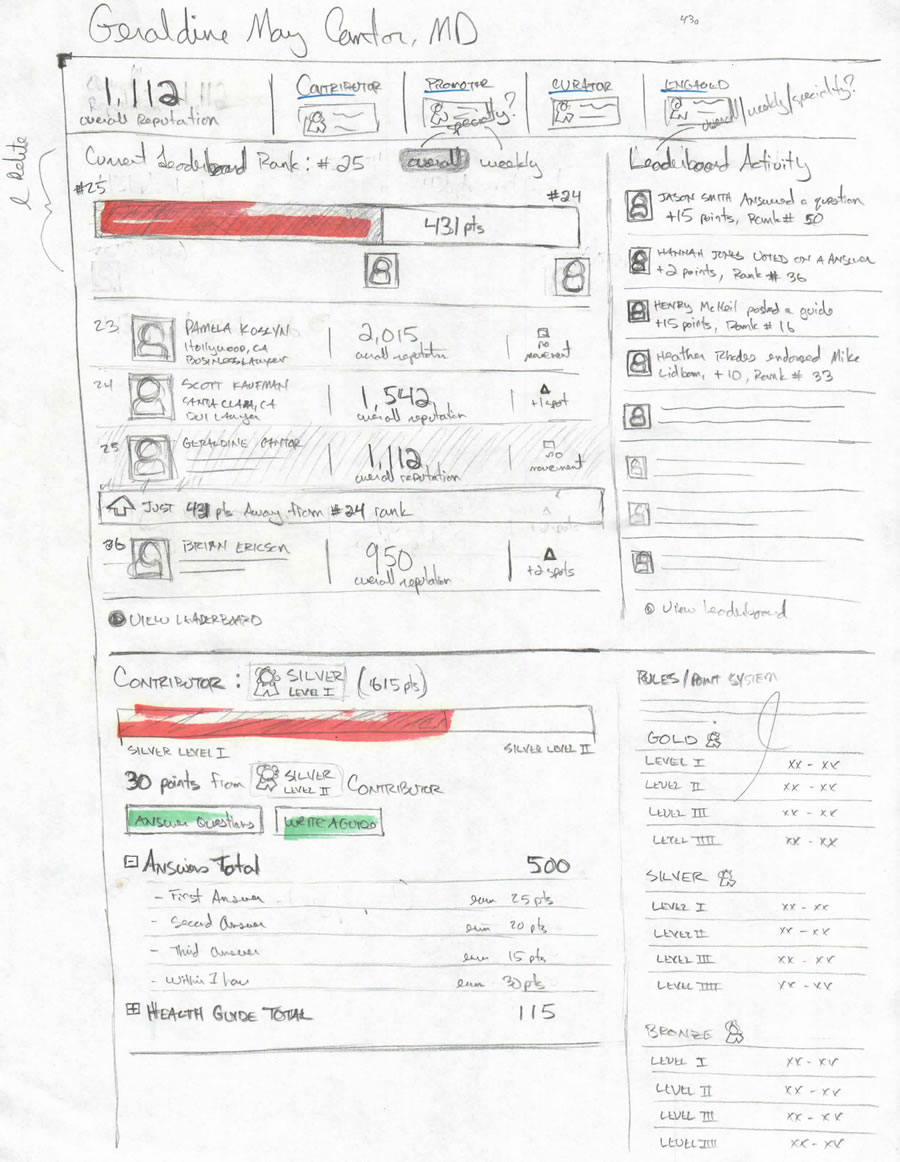 Geraldine May Cantor, MD
430
1,112
overall Reputation
CONTRIBUTOR
PROMOTER
specialty?
CURATOR
ENGAGED
overall/weekly/speciality?
Current Leaderboard Rank: #25
overall
weekly
#25
#24
431 pts
23
PAMELA KOSLYN
Hollywood, CA
BUSINESS LAWYER
2,015
overall reputation
no
movement
24
SCOTT KAUFMAN
SANTA CLARA, CA
DUI LAWYER
1,542
overall reputation
+1 spot
25
GERALDINE CANTOR
1,112
overall reputation
no
movement
JUST 431 pts Away from #24 rank
36
BRIAN ERICSON
950
overall reputation
+2 spots
VIEW LEADERBOARD
Leaderboard Activity
JASON SMITH Answered a question
+15 points, Rank # 50
HANNAH JONES VOTED ON A ANSWER
+2 points, Rank # 36
HENRY McNeil posted a guide
+15 points, Rank # 16
Heather Rhodes endorsed Mike
Lidbom, +10, Rank # 33
View leaderboard
CONTRIBUTOR : SILVER LEVEL I (615 pts)
SILVER LEVEL I
SILVER LEVEL II
30 points from SILVER LEVEL II CONTRIBUTOR
ANSWER QUESTIONS
WRITE A GUIDE
Answers Total 500
- First Answer earn 25 pts
- Second Answer earn 20 pts
- Third Answer earn 15 pts
- Within 1 hour earn 30 pts
HEALTH GUIDE TOTAL 115
RULES/POINT SYSTEM
GOLD
LEVEL I xx - xx
LEVEL II xx - xx
LEVEL III xx - xx
LEVEL IIII xx - xx
SILVER
LEVEL I xx - xx
LEVEL II xx - xx
LEVEL III xx - xx
LEVEL IIII xx - xx
BRONZE
LEVEL I xx - xx
LEVEL II xx - xx
LEVEL III xx - xx
LEVEL IIII xx - xx